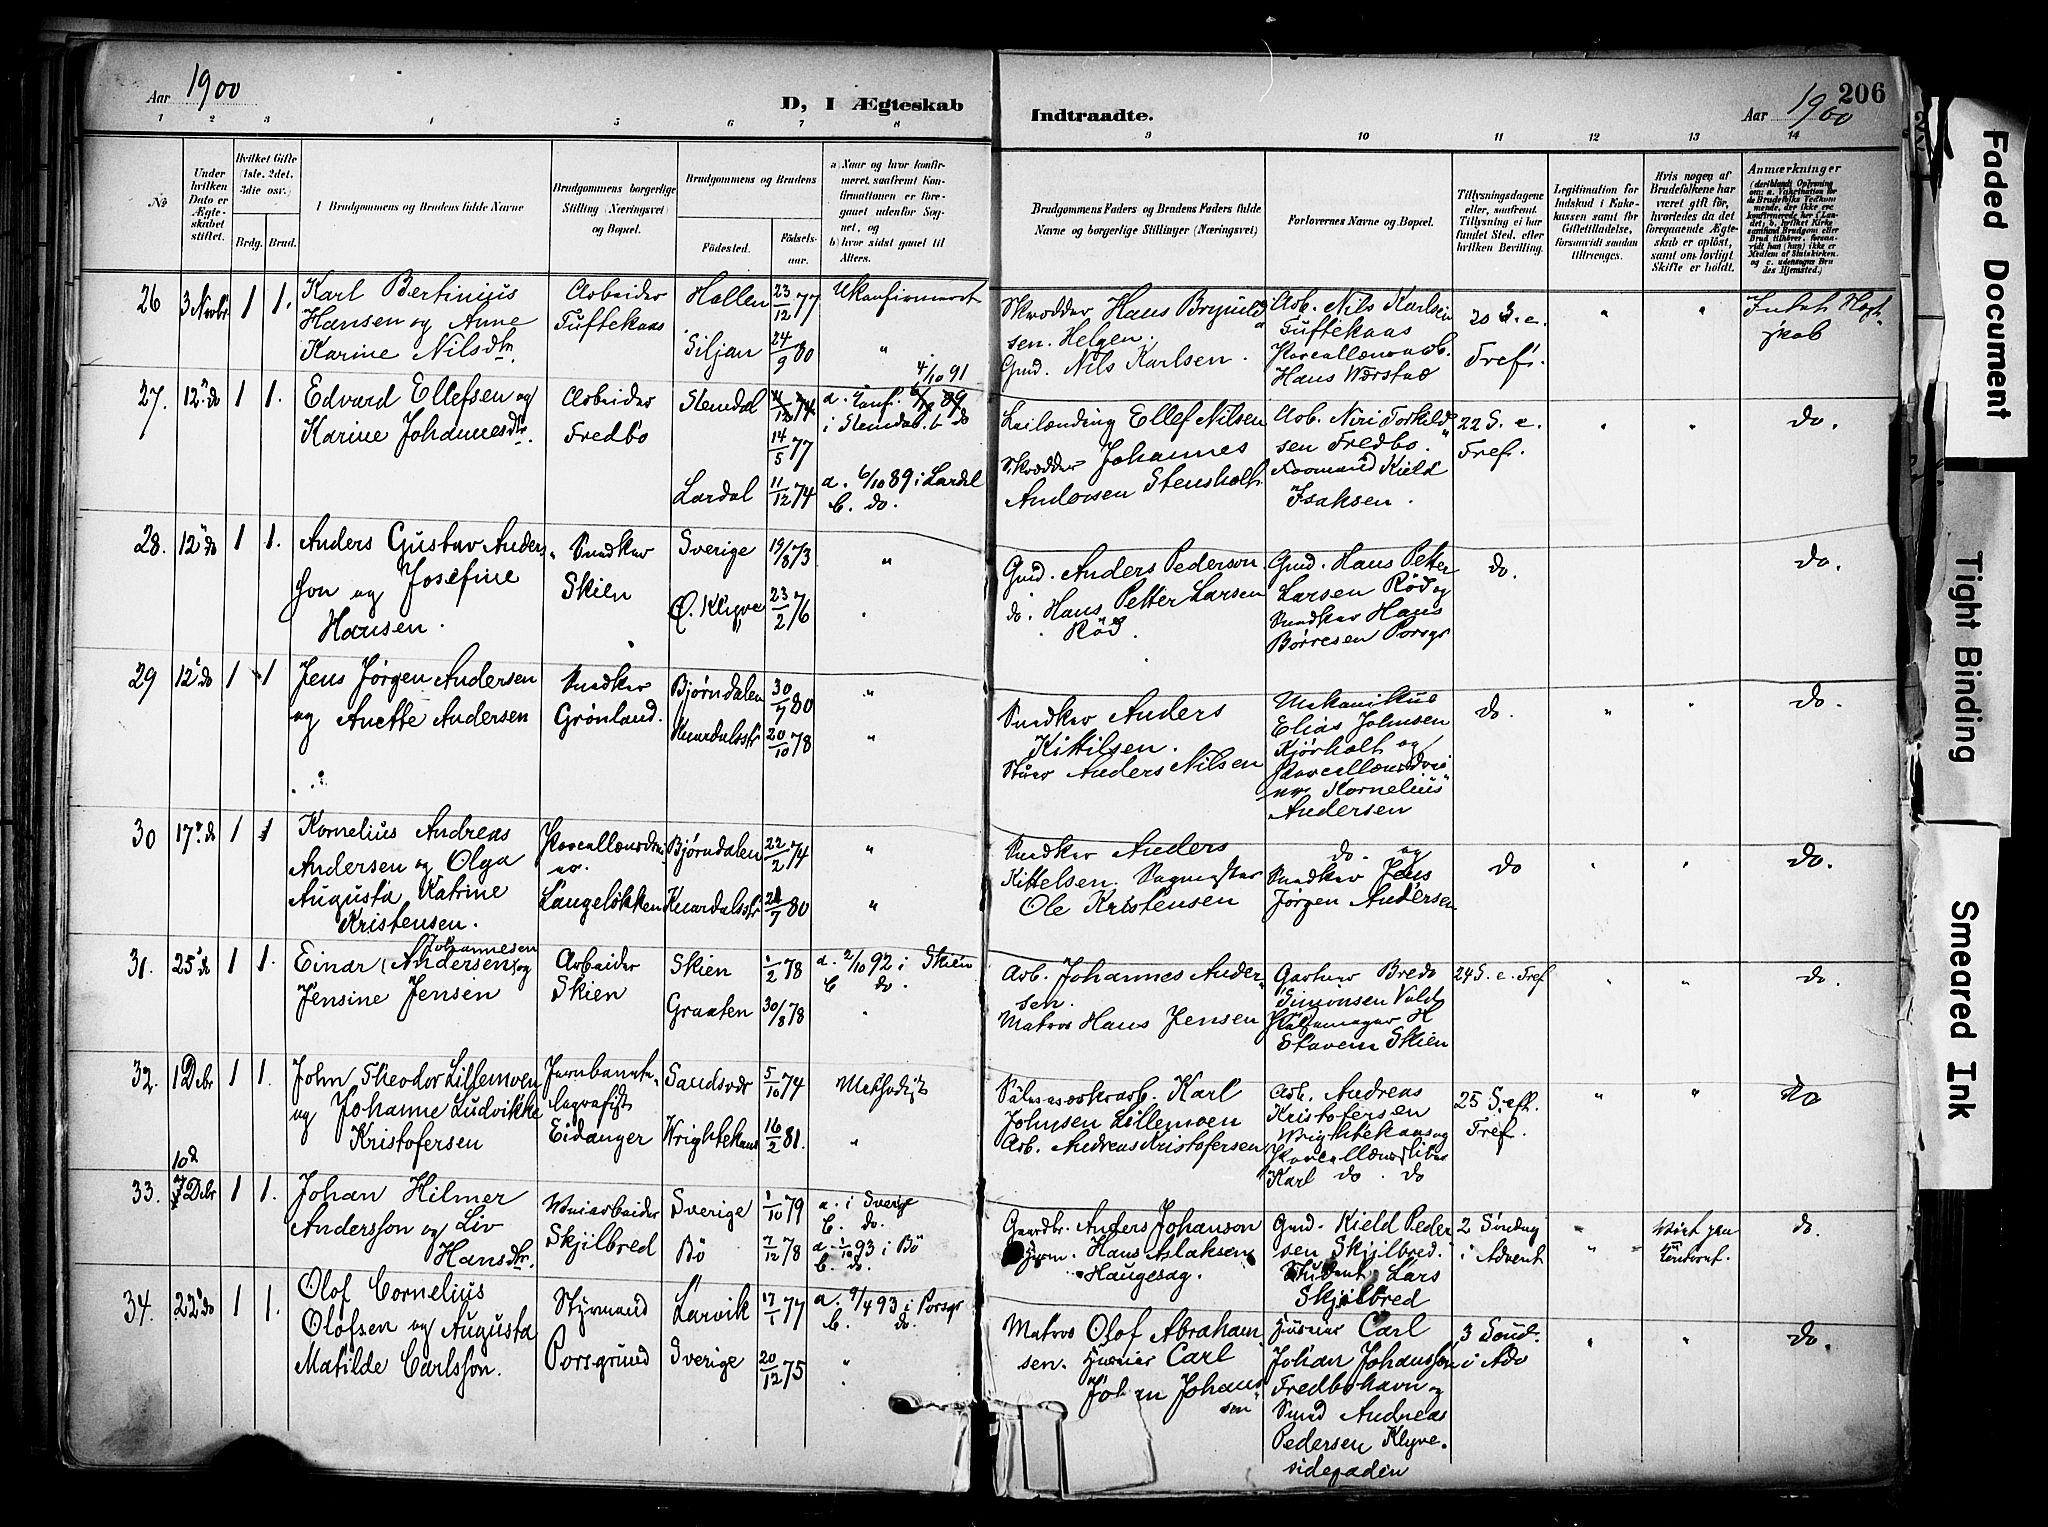 Aar 1900
D, I Ægteskab
Indtraadte.
Aar 1900
206
1 2 3 4 5 6 7 8
9 10 11 12 13 14
No
Under hvilken Dato er Ægteskabet stiftet.
Hvilket Gifte (1ste. 2det. 3die osv.)
Brdg. Brud.
Brudgommens og Brudens fulde Navne
Brudgommens borgerlige Stilling (Næringsvei) og Bopæl.
Brudgommens og Brudens
Fødested.
Fødselsaar.
a) Naar og hvor konfirmeret, saafremt Konfirmationen er foregaaet udenfor Sognet, og
b) hvor sidst gaaet til Alters.
Brudgommens Faders og Brudens Faders fulde Navne og borgerlige Stillinger (Næringsvei)
Forlovernes Navne og Bopæl.
Tillysningsdagene eller, saafremt Tillysning ei har fundet Sted, efter hvilken Bevilling.
Legitimation for Indskud i Enkekassen samt for Giftetilladelse, forsaavidt saadan tiltrænges.
Hvis nogen af Brudefolkene har været gift før, hvorledes da det foregaaende Ægteskab er opløst, samt om lovligt Skifte er holdt.
Anmærkninger
26 3 Novbr 1 1.
Karl Bertinius
Hansen og Anne
Karine Nilsdtr.
Arbeider
Tuftekaas
Hollen 23/12 77
Siljan 24/3 80
Ukonfirmeret
"
Skrædder Hans Brynild
sen. Helgen.
Gmd. Nils Karlsen.
Arb. Nils Karlsen
Tuftekaas
Porcellænsarb.
Hans Wærstad
20 S. e.
Tref.
27. 12 do 1 1.
Edvard Ellefsen og
Karine Johannesdtr.
Arbeider
Fredbo
Slemdal
14/5 77
Lardal 11/12 74
4/10 91
a. Konf.
i Slemdal. b do
a. 6/10 89 i Lardal
b. do.
Leilænding Ellef Nilsen
Skrædder Johannes
Andersen Stensholt
Arb. Niri Torkild
sen Fredbo.
Formand Kield
Isaksen.
22 S. e.
Tref.
do.
28. 12 do 1 1.
Anders Gustav Anders
son og Josefine
Hansen.
Snedker
Skien
Sverige 19/8 73
Ø. Klyve 23/2 76
Gmd. Anders Pederson
do. Hans Petter Larsen
Rød.
Gmd. Hans Peter
Larsen Rød og
Snedker Hans
Börresen Porsgr
do.
do.
29 12 do 1 1
Jens Jørgen Andersen
og Anette Andersen
Snedker
Grönland.
Bjørndalen 30/7 80
Knardalsstr 20/10 78
Snedker Anders
Kittilsen.
Stuer Anders Nilsen
Mekanikus
Elias Johnsen
Kjörholt og
Porcellænsdrei
er Kornelius
Andersen
do.
do.
30 17 do 1 1
Kornelius Andreas
Andersen og Olga
Augusta Katrine
Kristensen.
Porcellænsdrei
er.
Langeløkken
Bjørndalen 22/2 74
Knardalsstr 21/7 80
Snedker Anders
Kittelsen. Sagmester
Ole Kristensen
do. og
Snedker Jens
Jörgen Andersen
do
do.
31. 25 do 1 1.
Johannesen
Einar (Andersen) og
Jensine Jensen
Arbeider
Skien
Skien 1/2 78
Graaten 30/8 78
a. 2/10 92 i Skien
b do.
Arb. Johannes Ander
sen.
Matros Hans Jensen
Garver Bredo
Simonsen Vold
Pölsemager H
Stavem Skien
24 S. e. Tref
do.
32. 1 Debr 1 1.
John Theodor Lillemoen
og Johanne Ludvikke
Kristofersen
Jernbanete
legrafist
Eidanger
Sandsvær 5/10 74
Wrightekaas 16/2 81.
Methodist
"
Sölvværksarb. Karl
Johnsen Lillemoen
Arb. Andreas Kristofersen
Arb. Andreas
Kristofersen
Wrightekaas og
Karl do. do
25 S. eft.
Tref.
do
33. Debr 1 1.
Johan Hilmer
Andersson og Liv
Hansdtr.
Veiarbeider
Skjilbred
Sverige 1/10 79
Bö 7/12 78
a. i Sverige
b. do.
a. 1/10 93 i Bö
b. do.
Gaardbr. Anders Johanson
Hans Aslaksen
Haugesag.
Gmd. Kield Peder
sen Skjilbred.
Student Lars
Skjilbred
2 Söndag
i Advent
do.
34. 22 do 1 1.
Olof Cornelius
Olofsen og Augusta
Matilde Carlsson.
Styrmand
Porsgrund
Larvik 17/1 77
Sverige 20/12 75
a. 9/4 93 i Porsgr
b. do.
Matros Olof Abraham
sen. Huseier Carl
Johan Johans
sen
Huseier Carl
Johan Johansson
Fredbohavn og
Smed Andreas
Pedersen Klyve
sidegaden
3 Sönd.
i Adv
do.
Faded Document
Tight Binding
Smeared Ink